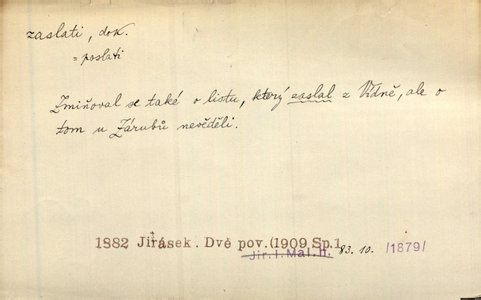 zaslati, dok.
= poslati
Zmiňoval se také o listu, který zaslal z Vídně, ale o
tom u Zárubů nevěděli.
1882 Jirásek. Dvě pov. (1909 Sp.1
Jir. I. Mal. h. 83.10. /1879/